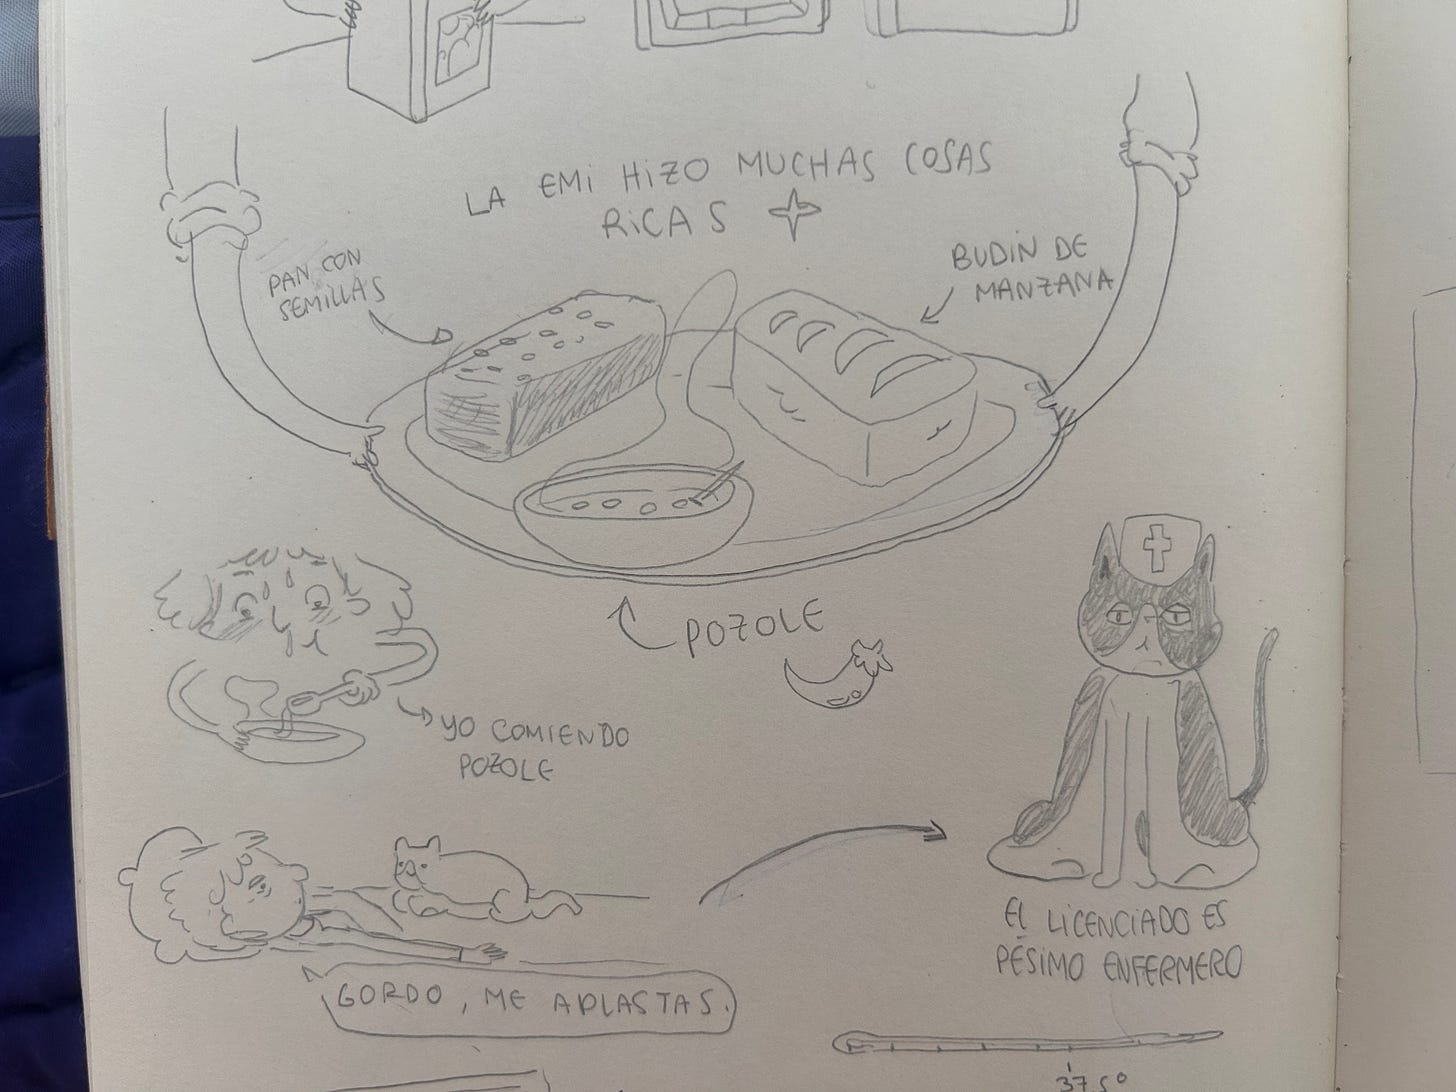 LA EMI HIZO MUCHAS COSAS
RICAS
PAN CON
SEMILLAS
BUDIN DE
MANZANA
POZOLE
YO COMIENDO
POZOLE
EL LICENCIADO ES
PÉSIMO ENFERMERO
GORDO, ME APLASTAS.
37.5°